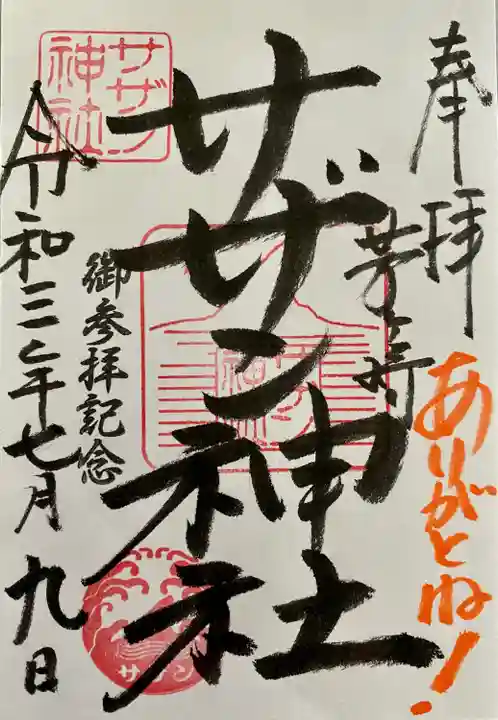 奉拝
茅ヶ崎
ありがとね!
サザン神社
御参拝記念
令和三年七月九日
サザン
神社
サザン